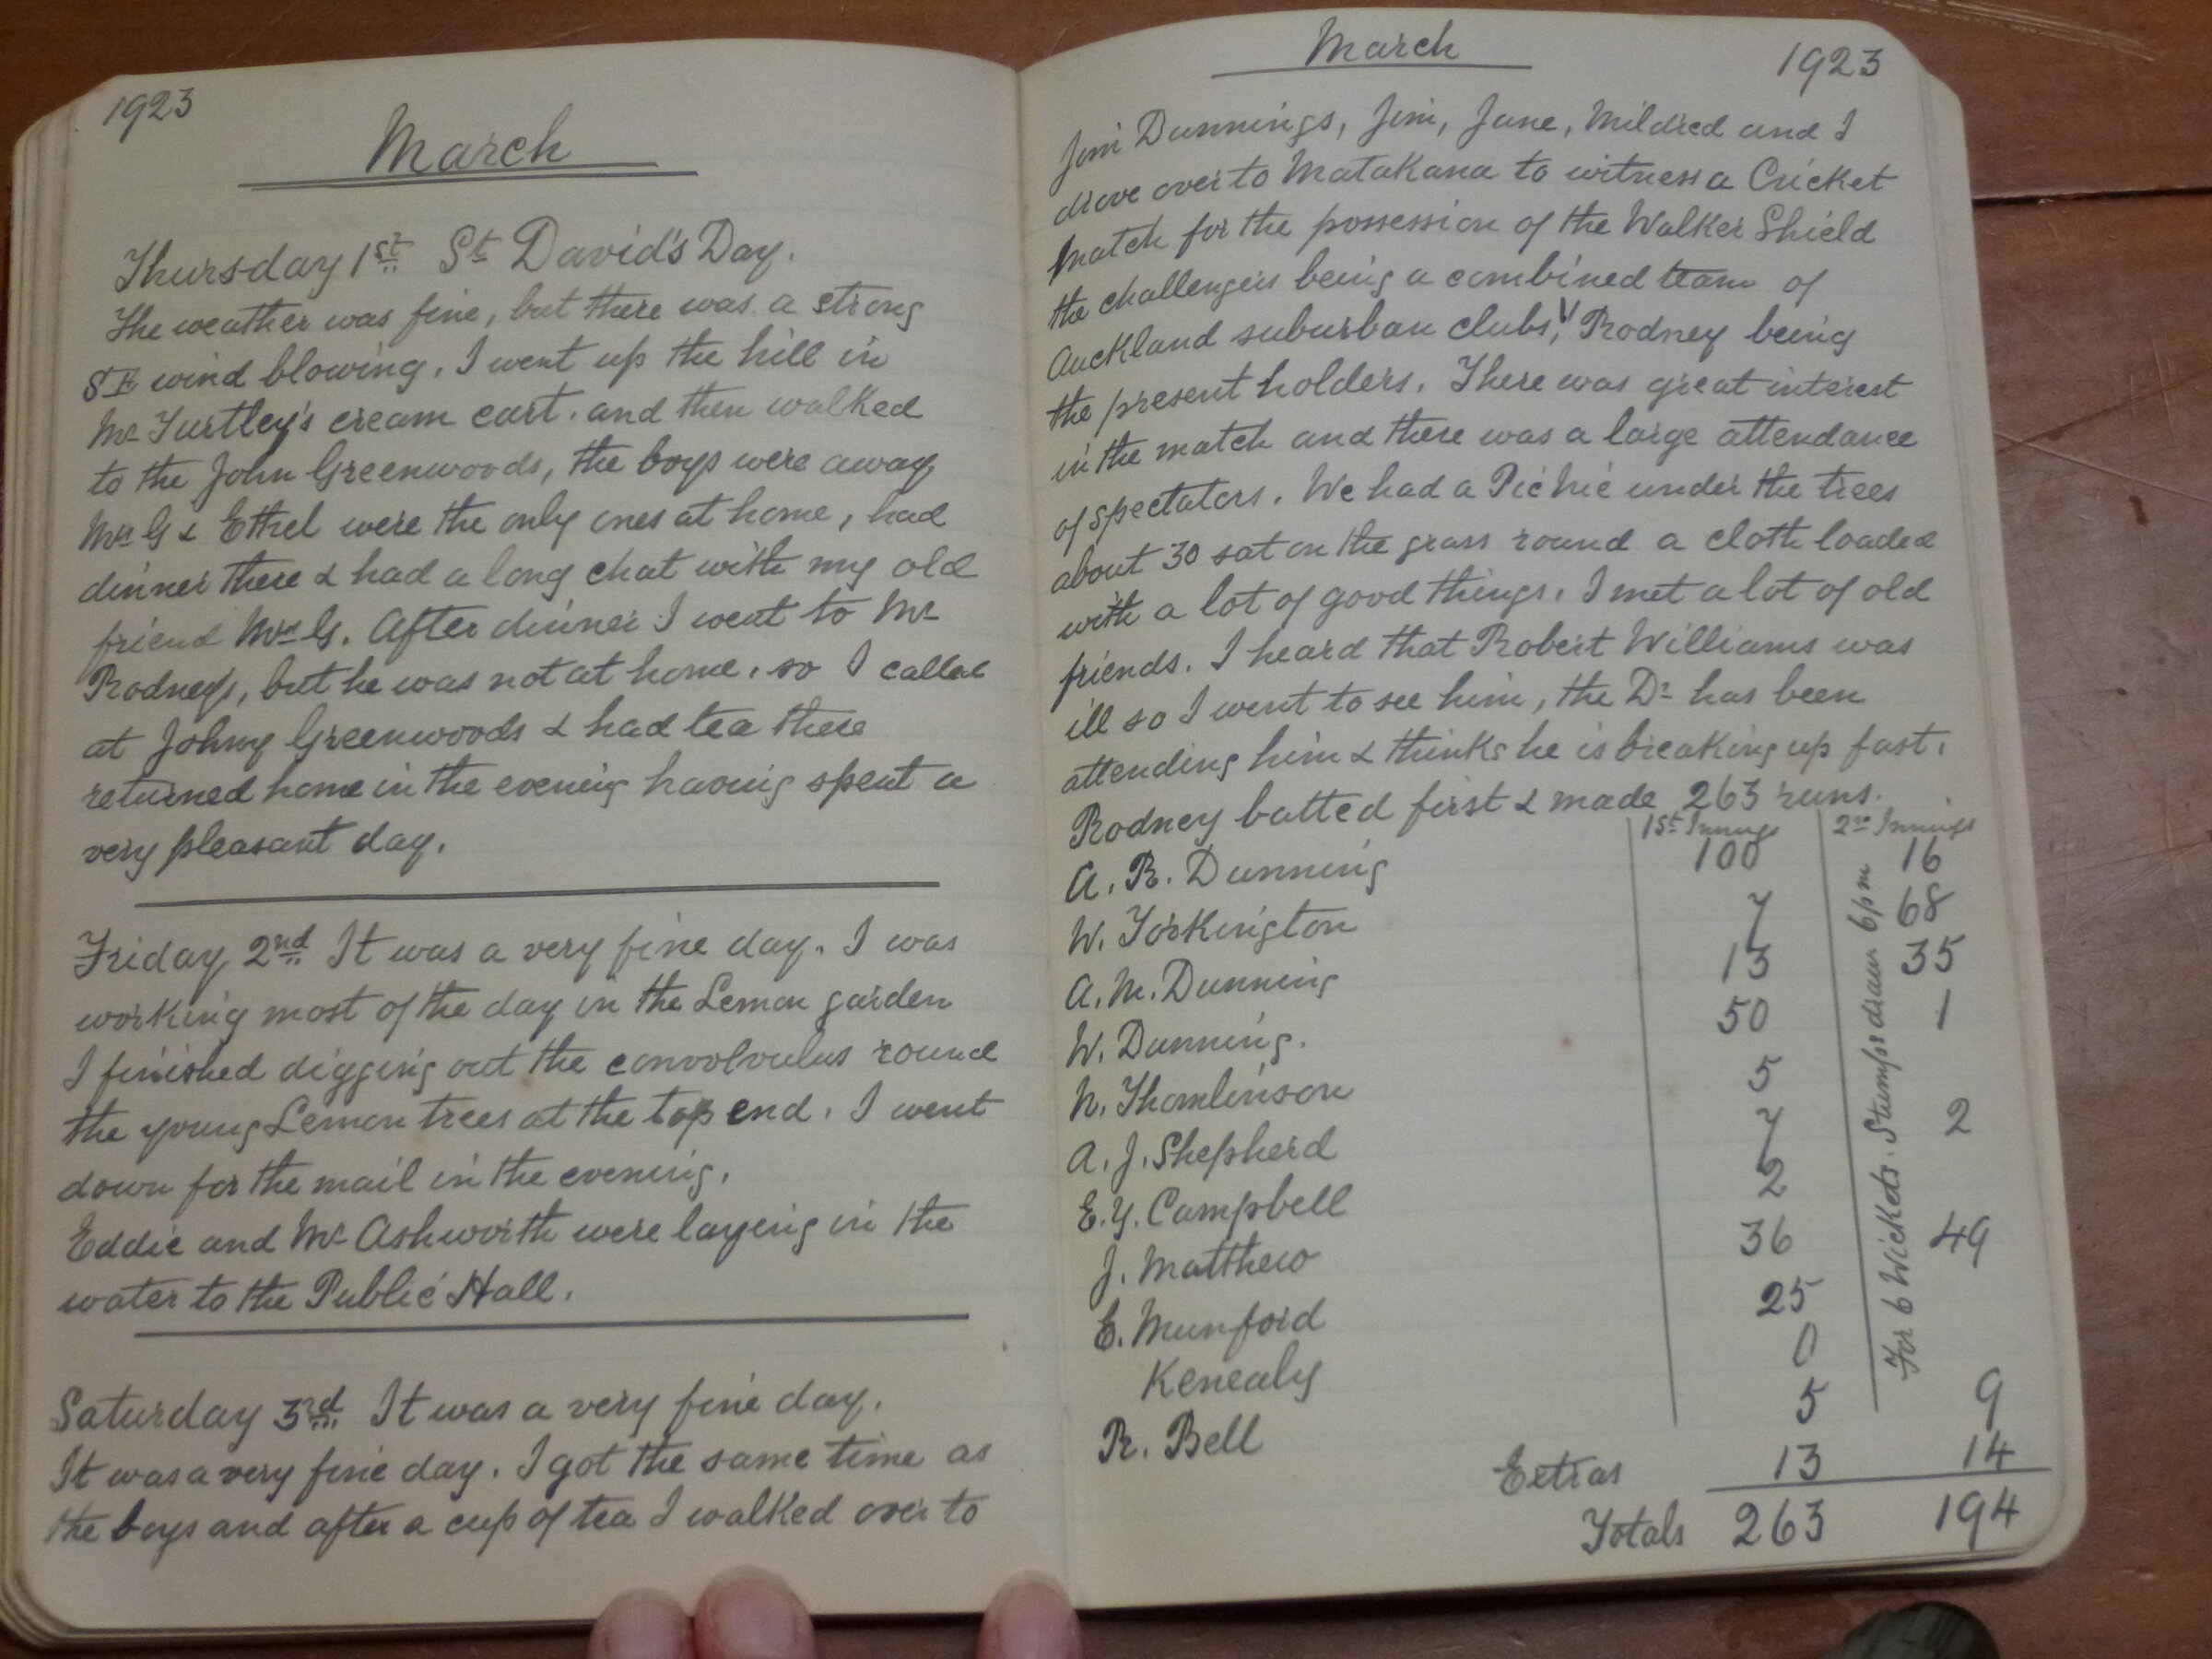 1923
March
Thursday 1st St David's Day.
The weather was fine, but there was a strong
SE wind blowing. I went up the hill in
Mr Turtley's cream cart. and then walked
to the John Greenwoods, the boys were away
Mrs G & Ethel were the only ones at home, had
dinner there & had a long chat with my old
friend Mrs G. After dinner I went to Mr
Rodneys, but he was not at home, so I called
at Johny Greenwoods & had tea there
returned home in the evening having spent a
very pleasant day.
Friday 2nd It was a very fine day. I was
working most of the day in the Lemon garden
I finished digging out the convolvulus round
the young Lemon trees at the top end. I went
down for the mail in the evening.
Eddie and Mr Ashworth were laying in the
water to the Public Hall.
Saturday 3rd It was a very fine day.
It was a very fine day. I got the same time as
the boys and after a cup of tea I walked over to
March 1923
Jim Dunnings, Jim, June, Mildred and I
drove over to Matakana to witness a Cricket
Match for the possession of the Walker Shield
the challengers being a combined team of
Auckland suburban clubs, V Rodney being
the present holders. There was great interest
in the match and there was a large attendance
of spectators. We had a Picnic under the trees
about 30 sat on the grass round a cloth loaded
with a lot of good things. I met a lot of old
friends. I heard that Robert Williams was
ill so I went to see him, the Dr has been
attending him & thinks he is breaking up fast.
Rodney batted first & made 263 runs.
1st Innings 2nd Innings
A. R. Dunning 100 16
W. Torkington 7 68
A. M. Dunning 13 35
W. Dunning. 50 1
N. Thomlinson 5
A. J. Shepherd 7 2
E. Y. Campbell 2
J. Matthew 36 49
E. Munford 25
Kenealy 0
R. Bell 5 9
Extras 13 14
Totals 263 194
For 6 Wickets. Stumps drawn 6pm